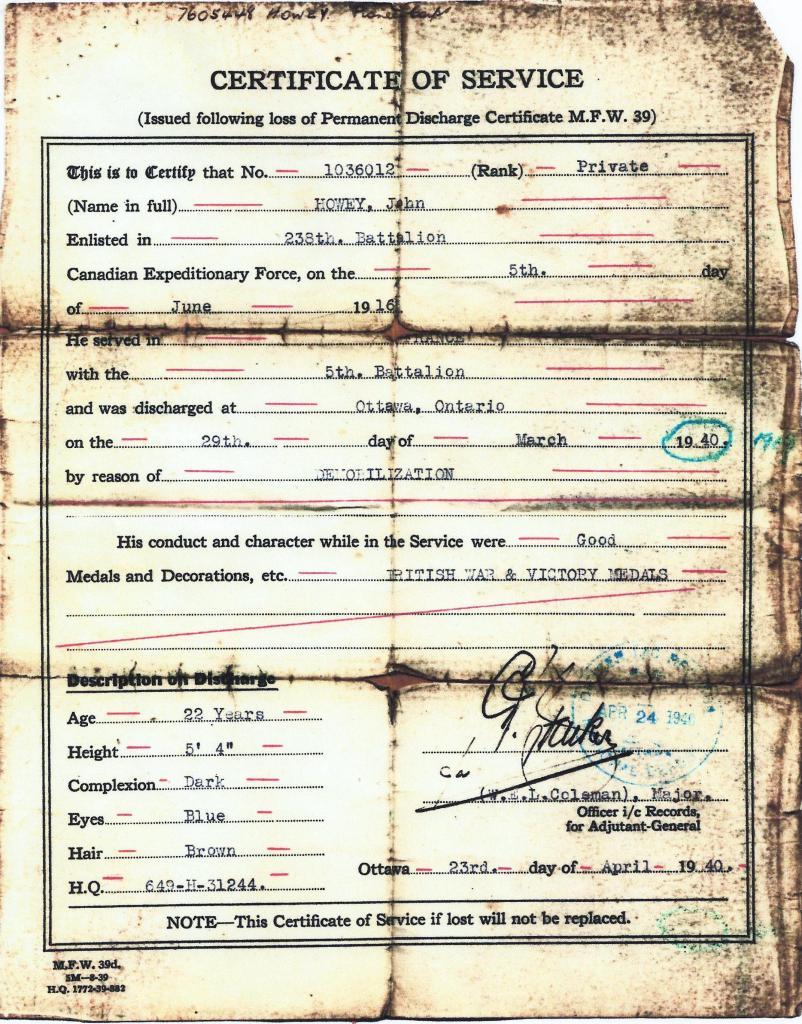 7605448 HOWEY
CERTIFICATE OF SERVICE
(Issued following loss of Permanent Discharge Certificate M.F.W. 39)
This is to Certify that No. 1036012 (Rank) Private
(Name in full) HOWEY, John
Enlisted in 238th. Battalion
Canadian Expeditionary Force, on the 5th. day
of June 1916
He served in FRANCE
with the 5th. Battalion
and was discharged at Ottawa, Ontario
on the 29th. day of March 1940.
by reason of DEMOBILIZATION
His conduct and character while in the Service were Good
Medals and Decorations, etc. BRITISH WAR & VICTORY MEDALS
Description on Discharge
Age 22 Years
Height 5' 4"
Complexion Dark
Eyes Blue
Hair Brown
H.Q. 649-H-31244.
APR 24 1940
(W.E.L.Coleman), Major.
Officer i/c Records,
for Adjutant-General
Ottawa 23rd. day of April 1940.
NOTE—This Certificate of Service if lost will not be replaced.
M.F.W. 39d.
5M—8-39
H.Q. 1772-39-882